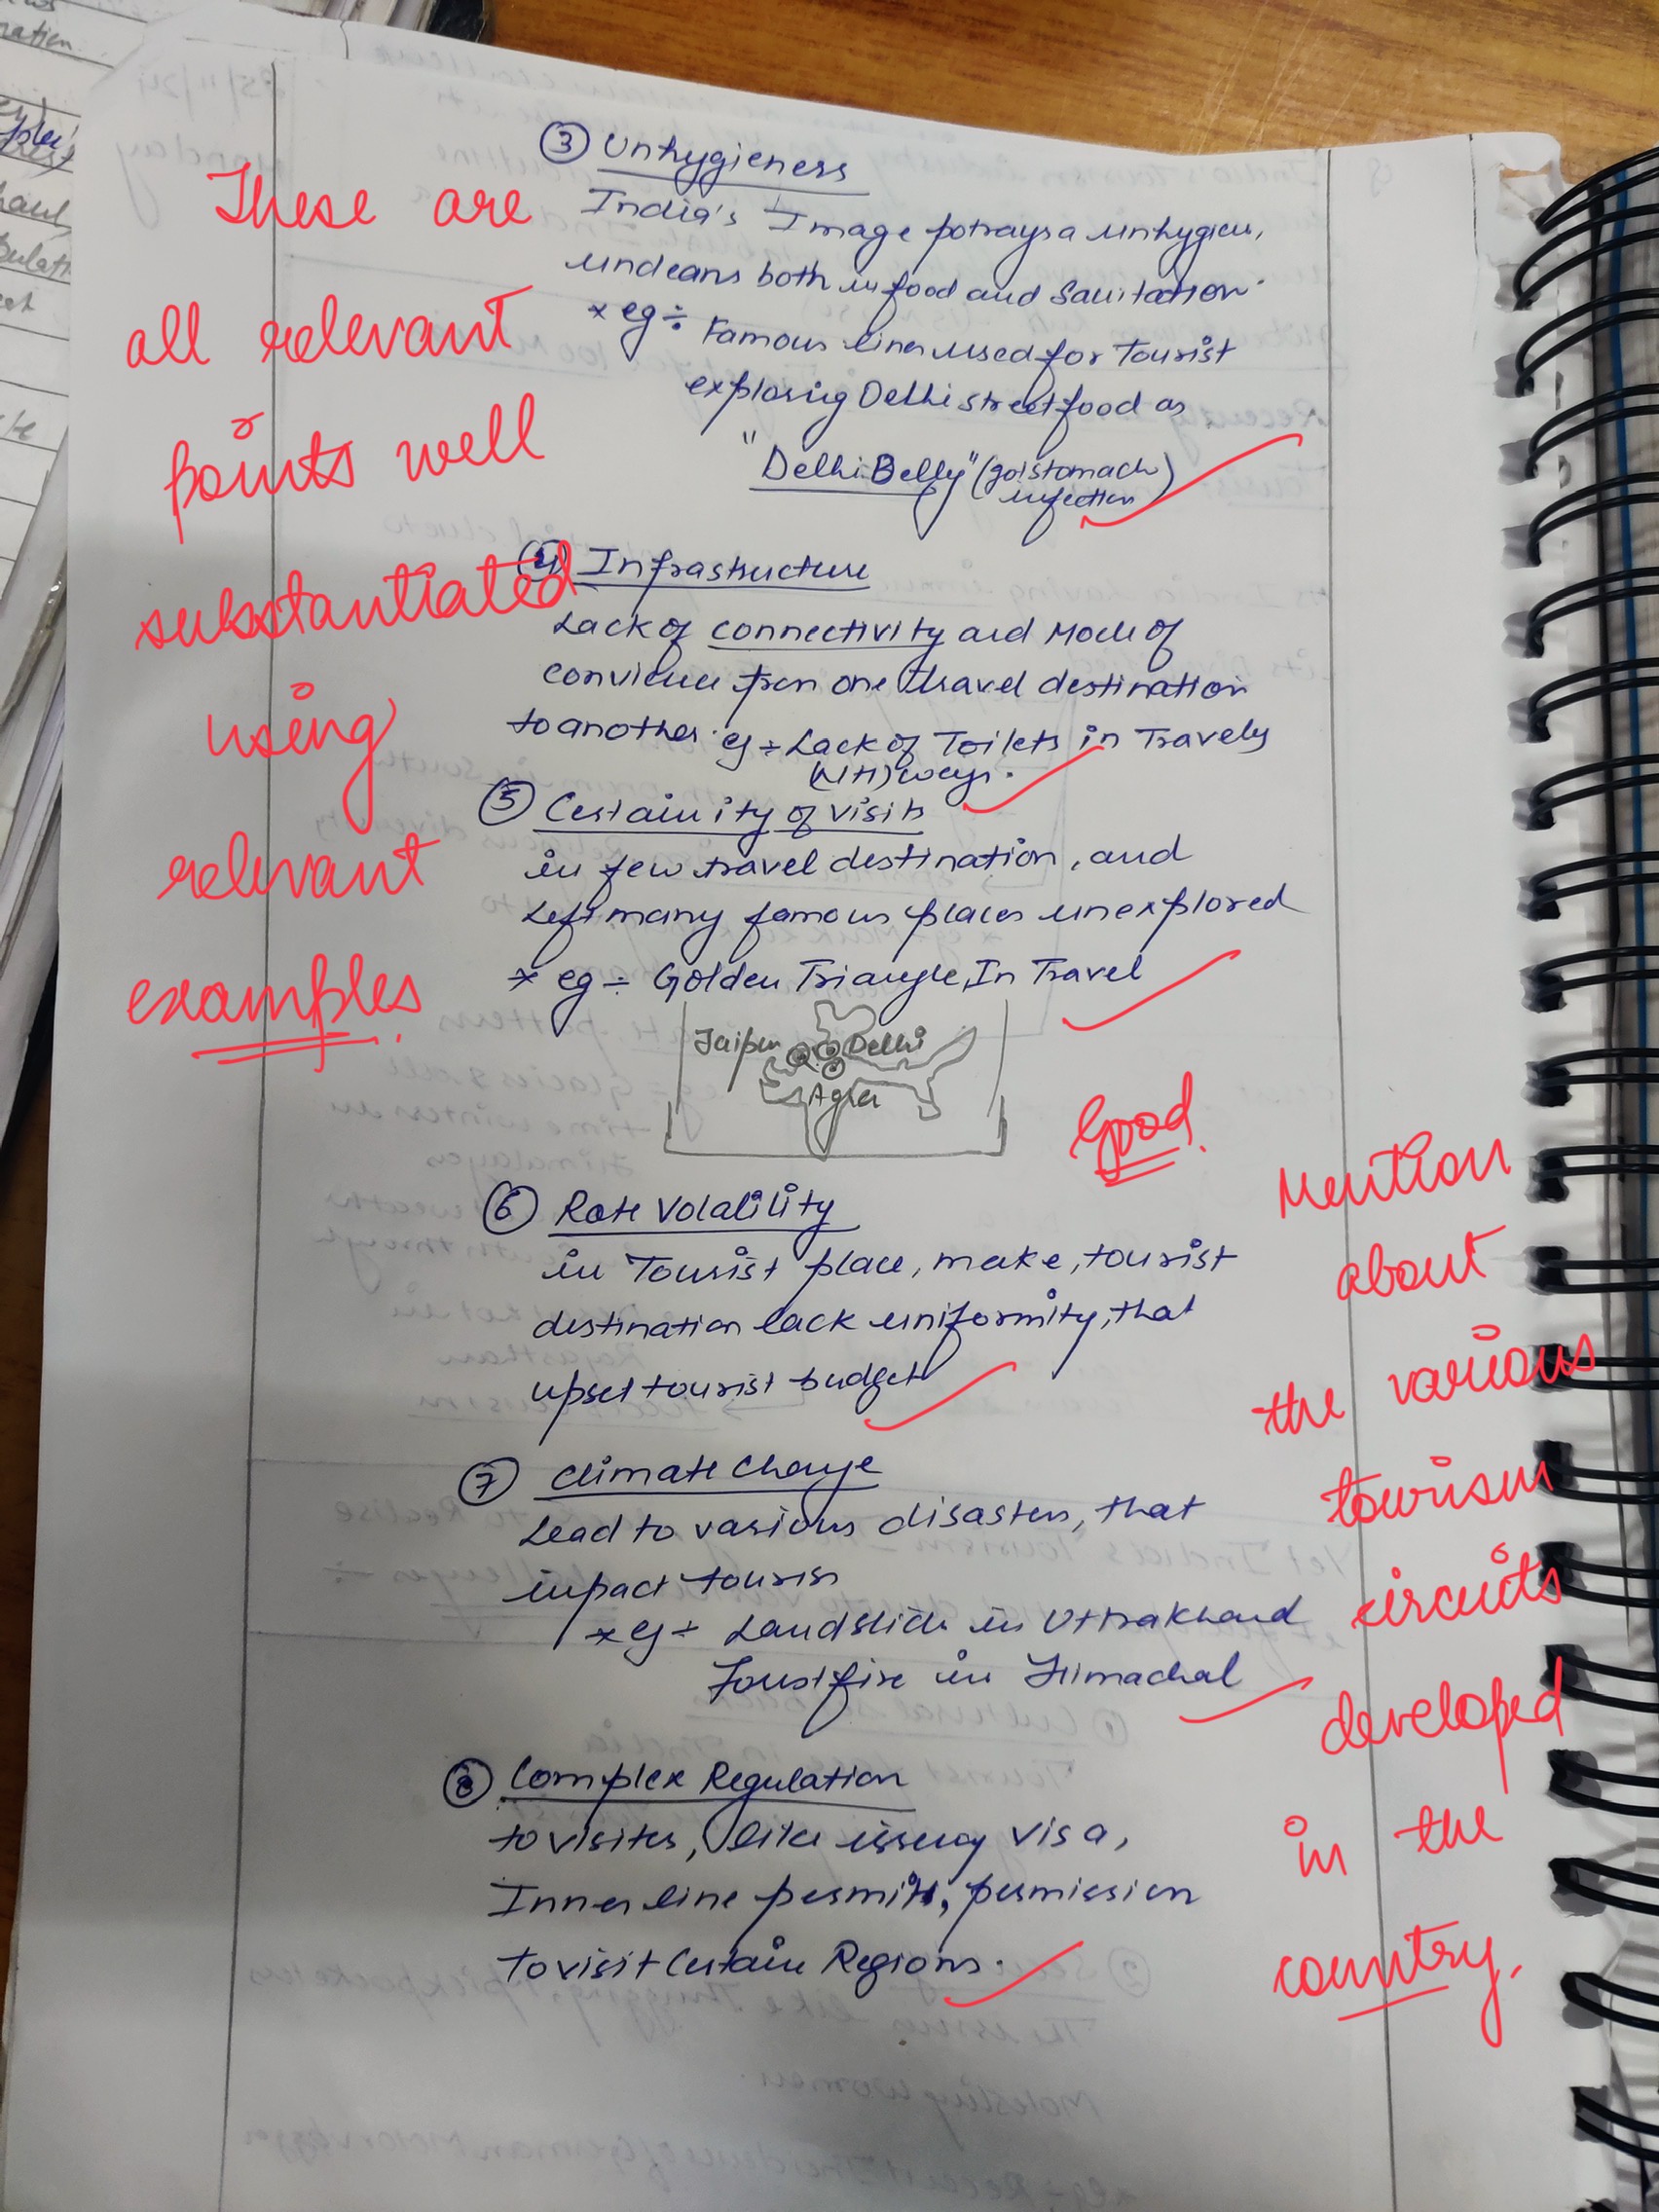 ③ Unhygieness
India's Image potrays a unhygicu,
undeans both in food and Sanitation
* eg ÷ Famous lines used for Tourist
exploring Delhi street food as
"Delhi Belly" (stomach
infection)
④ Infrastructure
Lack of connectivity and Mode of
one travel destination
to another. eg ÷ Lack of Toilets in Travely
(NH) ways.
⑤ Certainity of visits
in few travel destination, and
Left many famous places unexplored
* eg ÷ Golden Triangle, In Travel
Jaipur Delhi
Agra
⑥ Rate Volality
in Tourist place, make, tourist
destination lack uniformity, that
upset tourist budget
⑦ Climate Change
Lead to various disasters, that
impact tourism
* eg ÷ Landslide in Uttrakhand
Forest fire in Himachal
⑧ Complex Regulation
to visites, like issuing visa,
Inner line permits, permission
to visit Certain Regions.
These are
all relevant
points well
substantiated
using
relevant
examples.
Good.
Mention
about
the various
tourism
circuits
developed
in the
country.